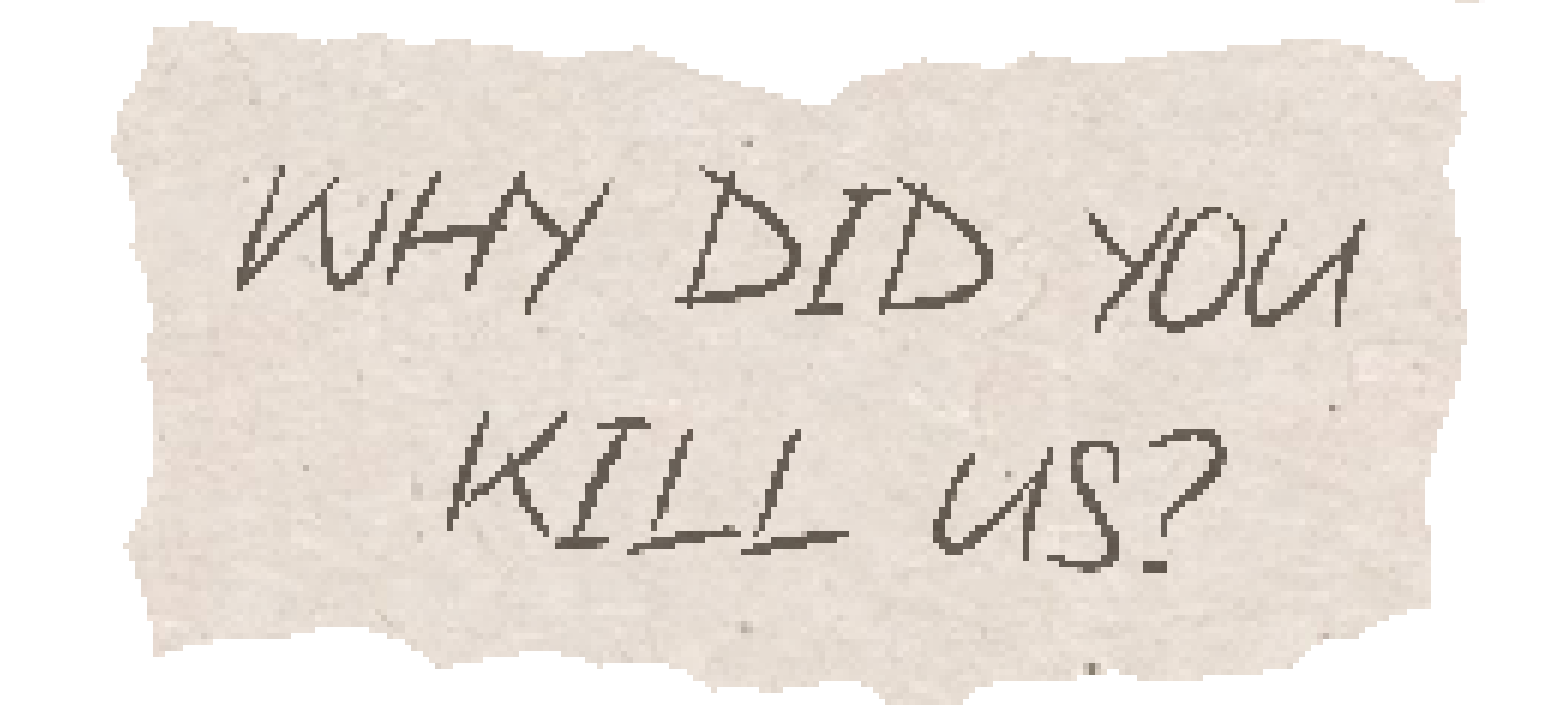 WHY DID YOU
KILL US?